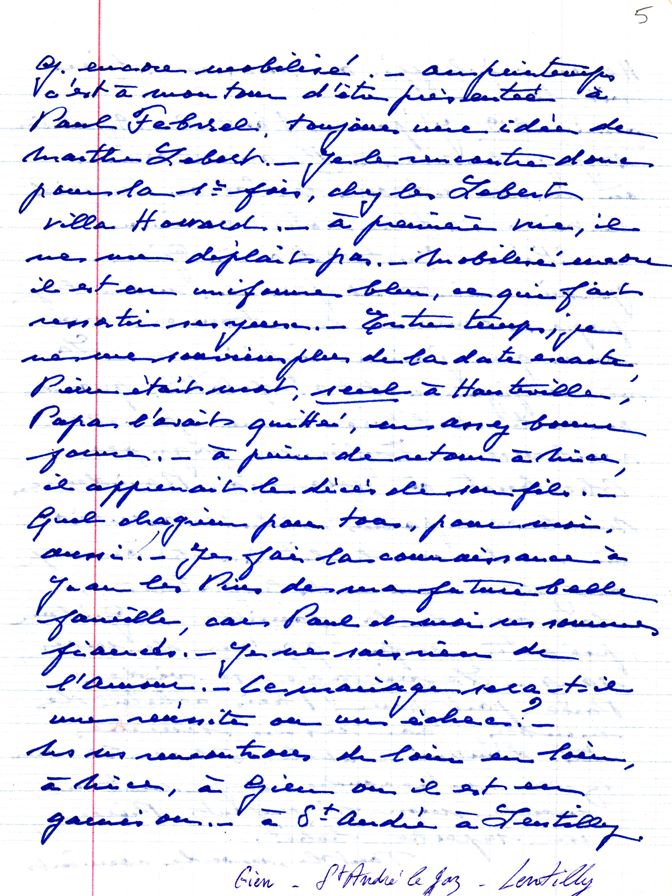 5
G. encore mobilisé. - au printemps
c'est à mon tour d'être présentée à
Paul Febvrel, toujours une idée de
Marthe Lebert. - Je le rencontre donc
pour la 1re fois, chez les Lebert
villa Howard. - à première vue, il
ne me déplait pas. - Mobilisé encore
il est en uniforme bleu, ce qui fait
ressortir ses yeux. - Entre temps, je
ne me souviens plus de la date exacte,
Pierre était mort, seul à Hauteville,
Papa l'avait quitté, en assez bonne
forme. - à peine de retour à Nice,
il apprenait le décès de son fils. -
Quel chagrin pour tous, pour moi,
aussi. - Je fais la connaissance à
Juan les Pins de ma future belle
famille, car Paul et moi ns sommes
fiancés. - Je ne sais rien de
l'amour. - Ce mariage sera-t-il
une réussite ou un échec ? -
Ns ns rencontrons de loin en loin,
à Nice, à Gien ou il est en
garnison. - à St André à Lentilly.
Gien - St André le Gaz - Lentilly